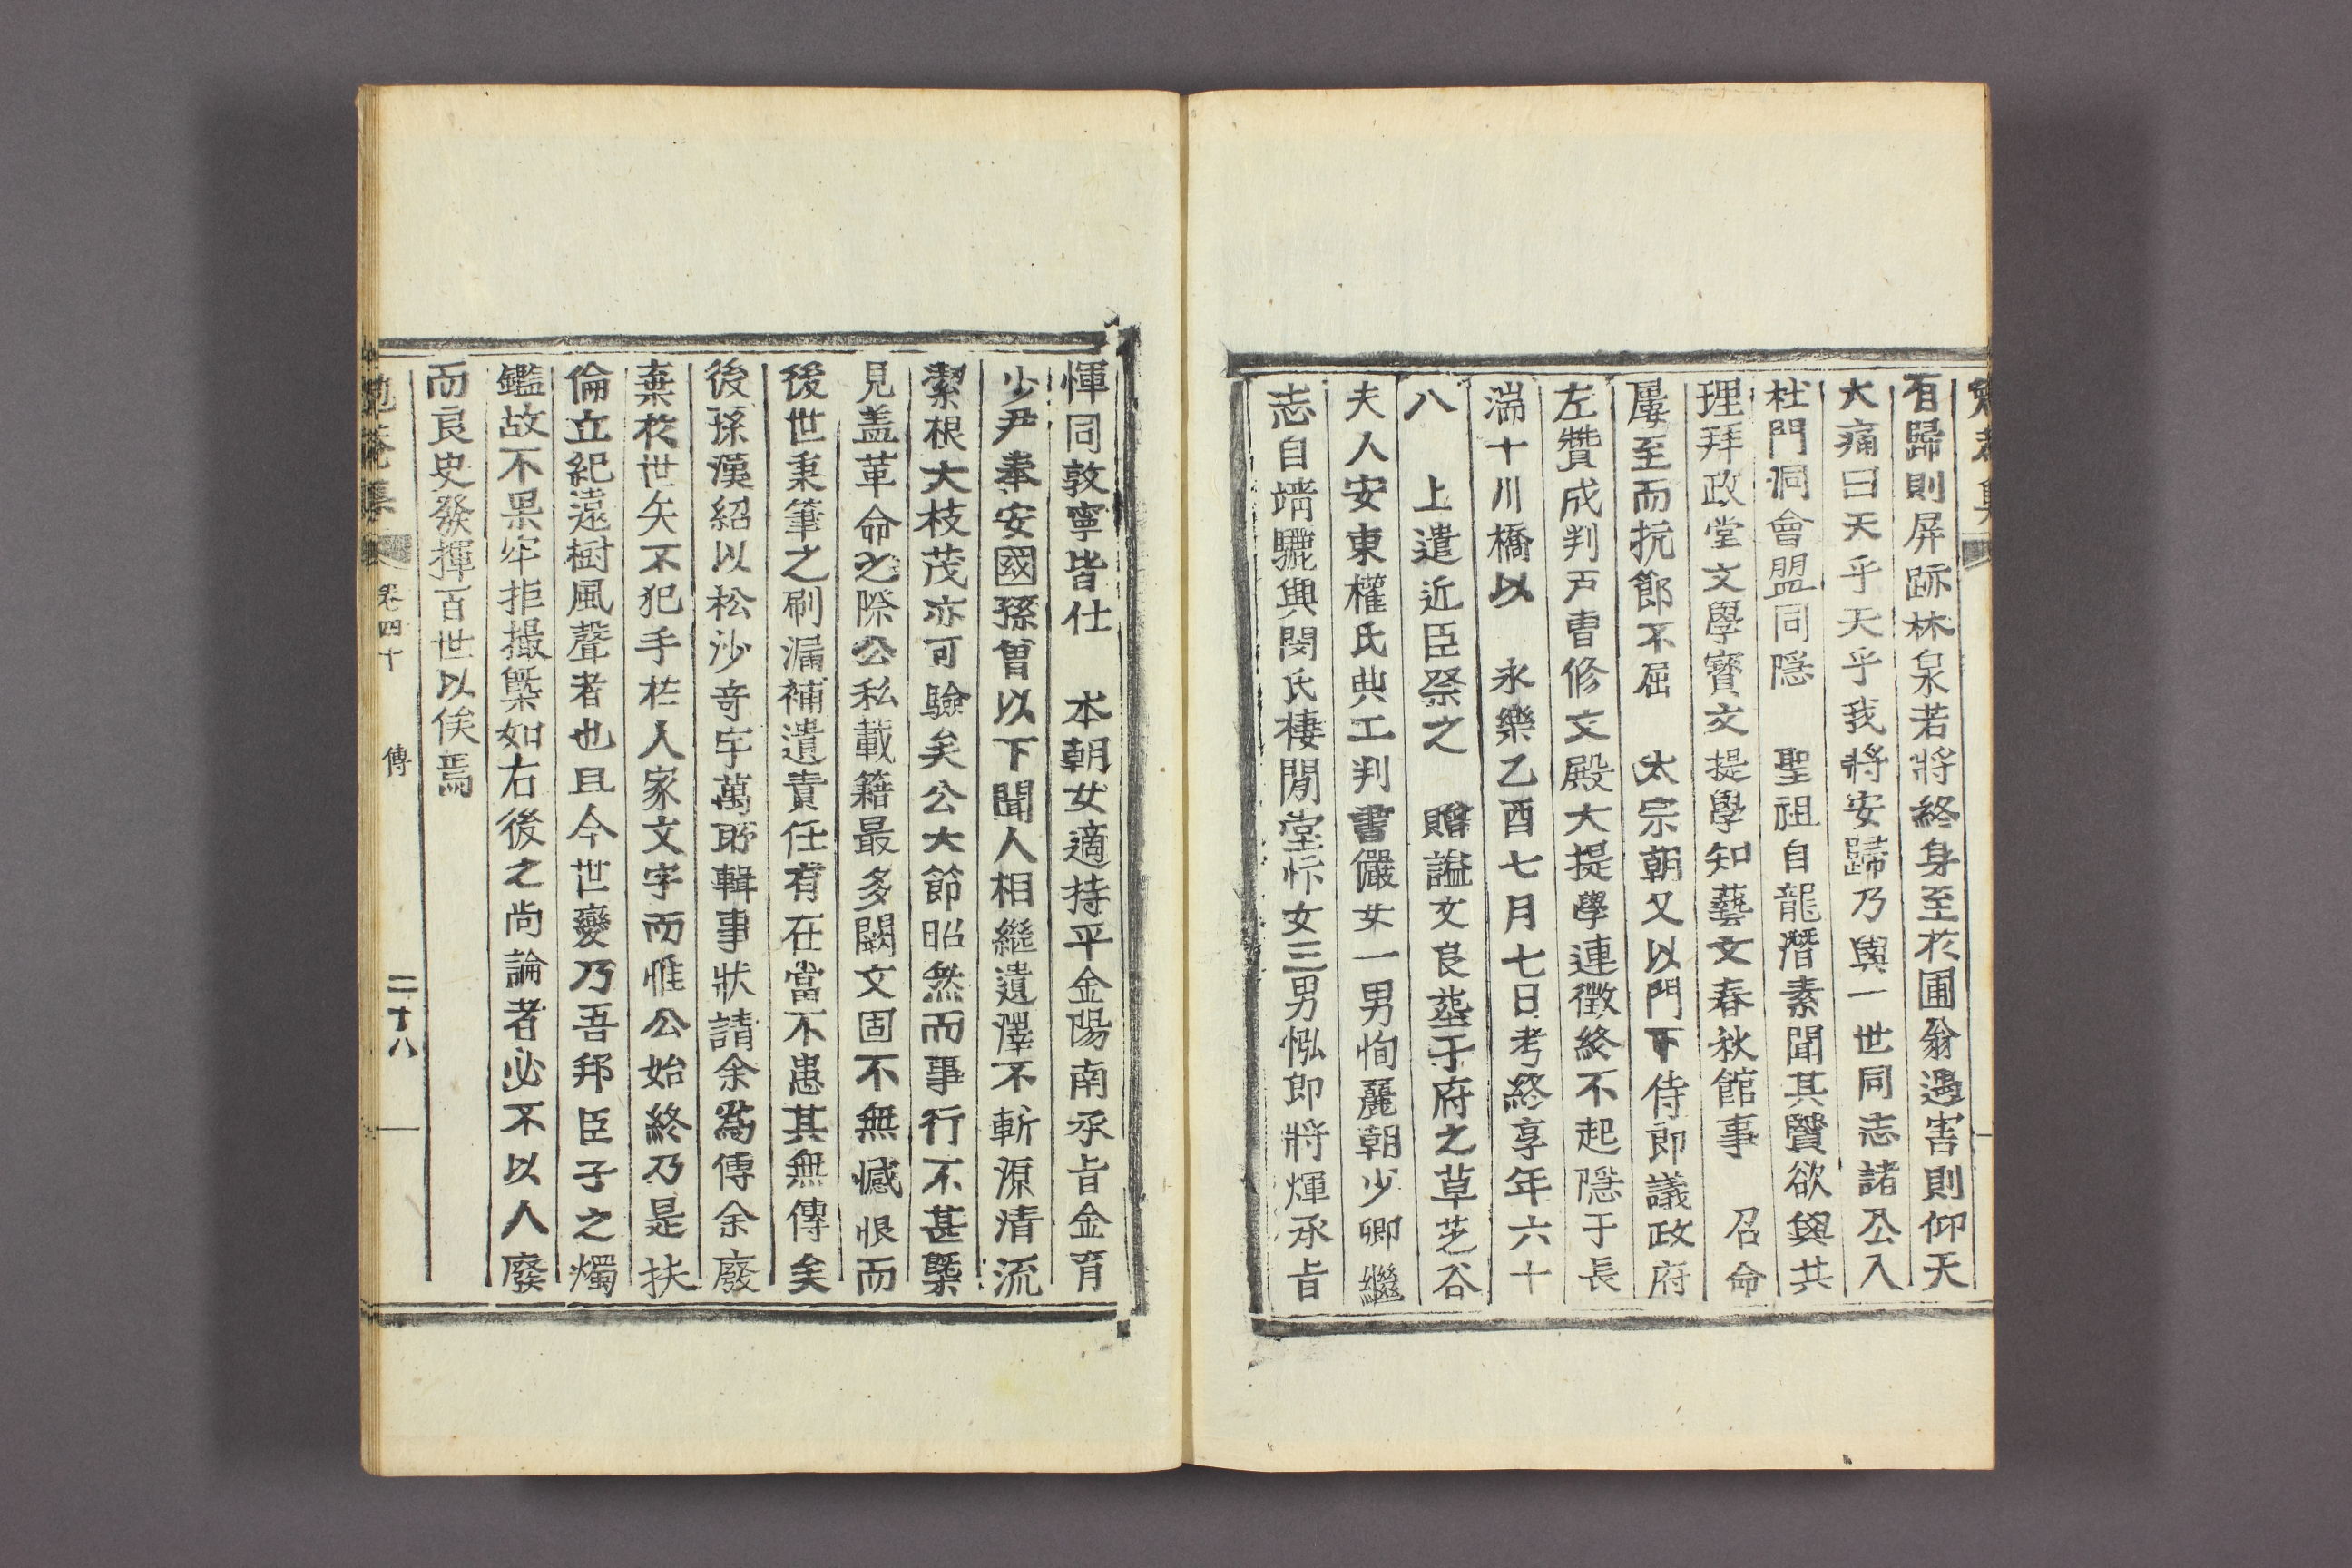 有歸則屏跡林泉若將終身至於圃翁遇害則仰天
大痛曰天乎天乎我將安歸乃與一世同志諸公入
杜門洞會盟同隱 聖祖自龍潛素聞其賢欲與共
理拜政堂文學寶文提學知藝文春秋館事 召命
屢至而抗節不屈 太宗朝又以門下侍郎議政府
左贊成判戶曹修文殿大提學連徵終不起隱于長
湍十川橋以 永樂乙酉七月七日考終享年六十
八 上遣近臣祭之 贈諡文良塟于府之草芝谷
夫人安東權氏典工判書儼女一男恂麗朝少卿繼
志自靖驪興閔氏棲閒堂忭女三男泓郎將煇承旨
惲同敦寧皆仕 本朝女適持平金陽南承旨金育
少尹奉安國孫曾以下聞人相繼遺澤不斬源清流
潔根大枝茂亦可驗矣公大節昭然而事行不甚槩
見盖革命之際公私載籍最多闕文固不無憾恨而
後世秉筆之刷漏補遺責任有在當不患其無傳矣
後孫漢紹以松沙奇宇萬所輯事狀請余爲傳余廢
棄於世矣不犯手於人家文字而惟公始終乃是扶
倫立紀遠樹風聲者也且今世變乃吾邦臣子之燭
鑑故不果牢拒撮槩如右後之尚論者必不以人廢
而良史發揮百世以俟焉
勉菴集 卷四十 傳 二十八